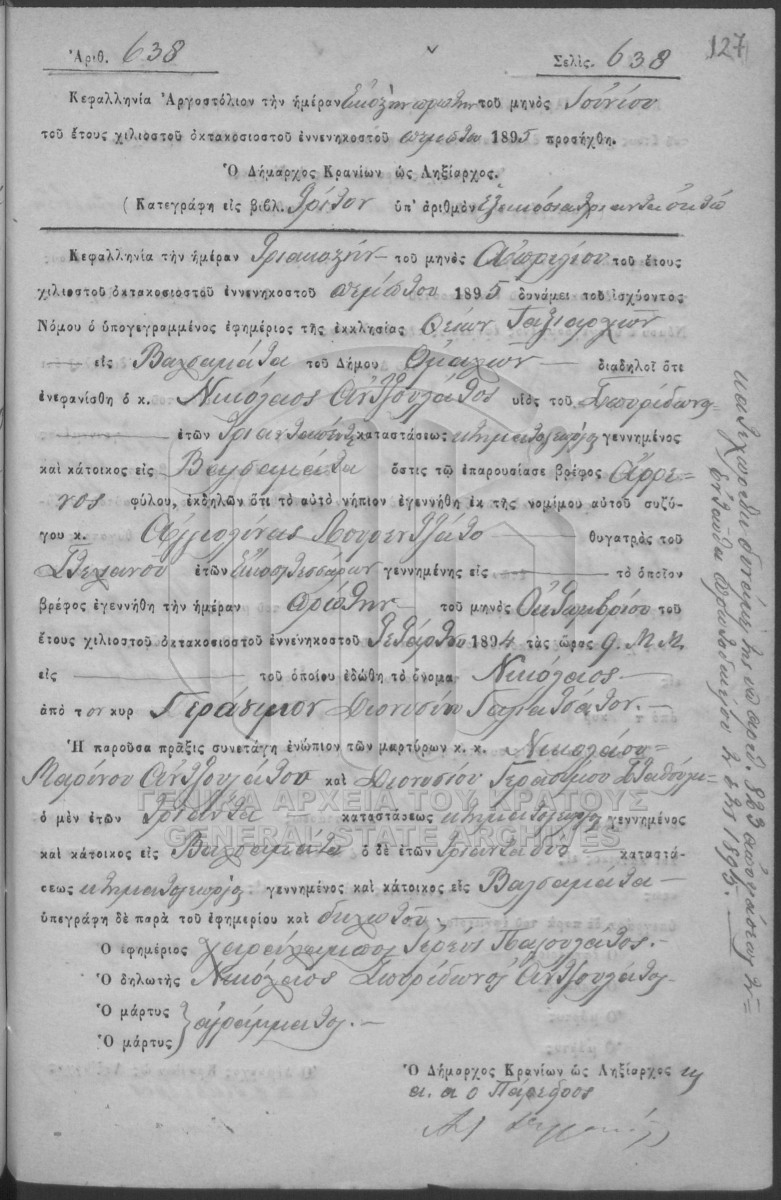 127
Ἀριθ. 638 Σελὶς. 638
Κεφαλληνία Ἀργοστόλιον τὴν ἡμέραν Εἰκοστὴν πρώτην τοῦ μηνὸς Ἰουνίου
τοῦ ἔτους χιλιοστοῦ ὀκτακοσιοστοῦ ἐννενηκοστοῦ πέμπτου 1895 προσήχθη.
Ὁ Δήμαρχος Κρανίων ὡς Ληξίαρχος.
(Κατεγράφη εἰς βιβλ. Τρίτον ὑπ' ἀριθμὸν Ἑξακόσια τριαντα ὀκτώ
Κεφαλληνία τὴν ἡμέραν Τριακοστὴν τοῦ μηνὸς Ἀπριλίου τοῦ ἔτους
χιλιοστοῦ ὀκτακοσιοστοῦ ἐννενηκοστοῦ πέμπτου 1895 δυνάμει τοῦ ἰσχύοντος
Νόμου ὁ ὑπογεγραμμένος ἐφημέριος τῆς ἐκκλησίας Θείων Ταξιαρχῶν
εἰς Βαλσαμάτα τοῦ Δήμου Ὁμαλῶν διαδηλοῖ ὅτι
ἐνεφανίσθη ὁ κ. Νικόλαος Ἀντζουλάτος υἱὸς τοῦ Σπυρίδωνος
ἐτῶν Τριανταπέντε καταστάσεως κτηματογεωργὸς γεννημένος
καὶ κάτοικος εἰς Βαλσαμάτα ὅστις τῷ ἐπαρουσίασε βρέφος ἄρρε-
νος φύλου, ἐκδηλῶν ὅτι τὸ αὐτὸ νήπιον ἐγεννήθη ἐκ τῆς νομίμου αὐτοῦ συζύ-
γου κ. Ἀγγελίνας Λουρεντζάτο θυγατρὸς τοῦ
Στεφάνου ἐτῶν Εἰκοσιτεσσάρων γεννημένης εἰς τὸ ὁποῖον
βρέφος ἐγεννήθη τὴν ἡμέραν πρώτην τοῦ μηνὸς Ὀκτωβρίου τοῦ
ἔτους χιλιοστοῦ ὀκτακοσιοστοῦ ἐννενηκοστοῦ Τετάρτου 1894 τὰς ὥρας 9. Μ.Μ.
εἰς τοῦ ὁποίου ἐδώθη τὸ ὄνομα Νικόλαος
ἀπὸ τον κυρ Γεράσιμον Διονυσίου Γαλατσάτον.
Ἡ παροῦσα πρᾶξις συνετάγη ἐνώπιον τῶν μαρτύρων κ. κ. Νικολάου
Μαρίνου Ἀντζουλάτου καὶ Διονυσίου Γερασίμου
ὁ μὲν ἐτῶν Τριάντα καταστάσεως κτηματογεωργὸς γεννημένος
καὶ κάτοικος εἰς Βαλσαμάτα ὁ δὲ ἐτῶν Τριανταδύο καταστά-
σεως κτηματογεωργὸς γεννημένος καὶ κάτοικος εἰς Βαλσαμάτα
ὑπεγράφη δὲ παρὰ τοῦ ἐφημερίου καὶ δηλωτοῦ.
Ὁ ἐφημέριος Χαράλαμπος Ἱερεὺς
Ὁ δηλωτὴς Νικόλαος Σπυρίδωνος Ἀντζουλάτος
Ὁ μάρτυς
Ὁ μάρτυς } ἀγράμματοι.
Ὁ Δήμαρχος Κρανίων ὡς Ληξίαρχος
α. α ο Πάρεδρος
κατεχωρέθη δυνάμει τῆς ὑπ' ἀριθ. 823 ἀποφάσεως τοῦ
ἐνταῦθα Πρωτοδικείου τοῦ ἔτους 1895.
ΓΕΝΙΚΑ ΑΡΧΕΙΑ ΤΟΥ ΚΡΑΤΟΥΣ
GENERAL STATE ARCHIVES